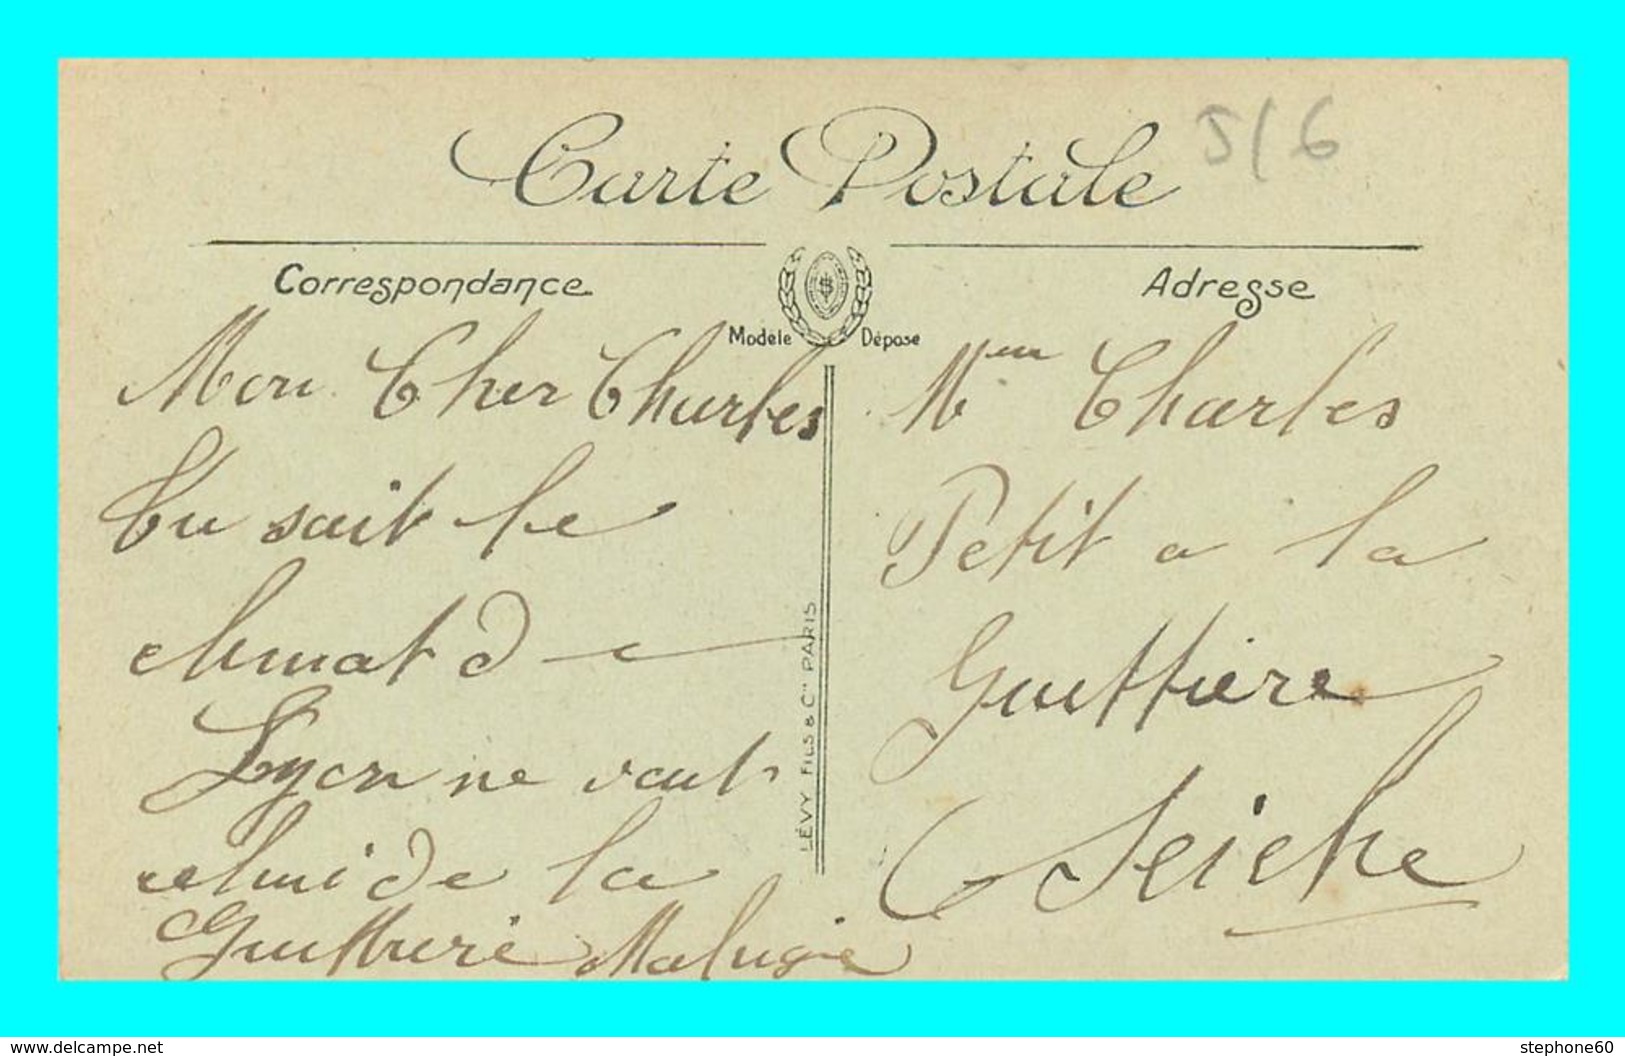 5/6
Carte Postale
Correspondance
Adresse
Modèle Déposé
Mon Cher Charles
tu sait le
climat de
Lyon ne vaut
celui de la
Guittière
LÉVY FILS & Cie PARIS
Mon Charles
Petit a la
Guittière
Seiche
www.delcampe.net
stephone60